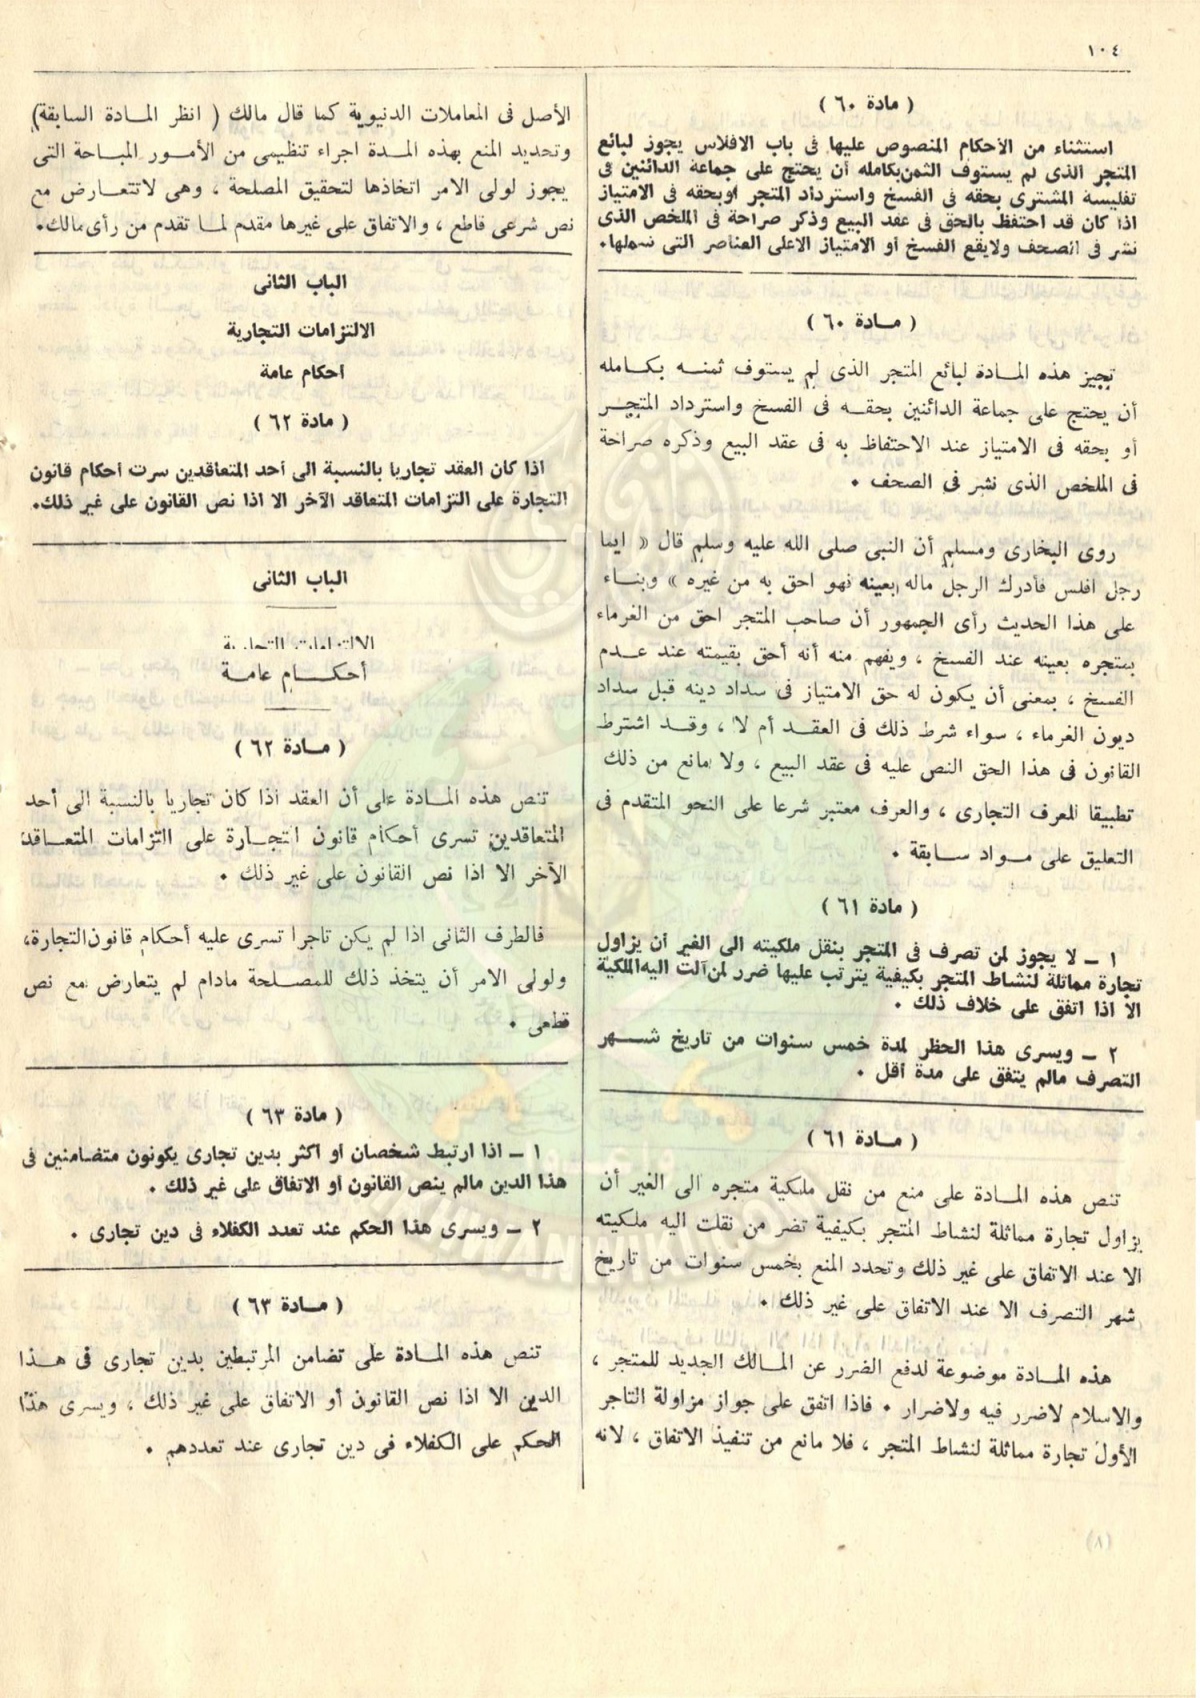 ١٠٤
( مادة ٦٠ )
استثناء من الأحكام المنصوص عليها فى باب الافلاس يجوز لبائع
المتجر الذى لم يستوف الثمن بكامله أن يحتج على جماعة الدائنين فى
تفليسة المشترى بحقه فى الفسخ واسترداد المتجر أو بحقه فى الامتياز
اذا كان قد احتفظ بالحق فى عقد البيع وذكر صراحة فى الملخص الذى
نشر فى الصحف ولايقع الفسخ أو الامتياز الاعلى العناصر التى شملها.
( مادة ٦٠ )
تجيز هذه المادة لبائع المتجر الذى لم يستوف ثمنه بكامله
أن يحتج على جماعة الدائنين بحقه فى الفسخ واسترداد المتجر
أو بحقه فى الامتياز عند الاحتفاظ به فى عقد البيع وذكره صراحة
فى الملخص الذى نشر فى الصحف .
روى البخارى ومسلم أن النبى صلى الله عليه وسلم قال « ايما
رجل افلس فأدرك الرجل ماله بعينه فهو احق به من غيره » وبناء
على هذا الحديث رأى الجمهور أن صاحب المتجر احق من الغرماء
بمتجره بعينه عند الفسخ ، ويفهم منه أنه أحق بقيمته عند عدم
الفسخ ، بمعنى أن يكون له حق الامتياز فى سداد دينه قبل سداد
ديون الغرماء ، سواء شرط ذلك فى العقد أم لا ، وقد اشترط
القانون فى هذا الحق النص عليه فى عقد البيع ، ولا مانع من ذلك
تطبيقا للعرف التجارى ، والعرف معتبر شرعا على النحو المتقدم فى
التعليق على مواد سابقة .
( مادة ٦١ )
١ – لا يجوز لمن تصرف فى المتجر بنقل ملكيته الى الغير أن يزاول
تجارة مماثلة لنشاط المتجر بكيفية يترتب عليها ضرر لمن آلت اليه الملكية
الا اذا اتفق على خلاف ذلك .
٢ – ويسرى هذا الحظر لمدة خمس سنوات من تاريخ شهر
التصرف مالم يتفق على مدة أقل .
( مادة ٦١ )
تنص هذه المادة على منع من نقل ملكية متجره الى الغير أن
يزاول تجارة مماثلة لنشاط المتجر بكيفية تضر من نقلت اليه ملكيته
الا عند الاتفاق على غير ذلك وتحدد المنع بخمس سنوات من تاريخ
شهر التصرف الا عند الاتفاق على غير ذلك .
هذه المادة موضوعة لدفع الضرر عن المالك الجديد للمتجر ،
والاسلام لاضرر فيه ولاضرار . فاذا اتفق على جواز مزاولة التاجر
الأول تجارة مماثلة لنشاط المتجر ، فلا مانع من تنفيذ الاتفاق ، لانه
الأصل فى المعاملات الدنيوية كما قال مالك ( انظر المادة السابقة)
وتحديد المنع بهذه المدة اجراء تنظيمى من الأمور المباحة التى
يجوز لولى الامر اتخاذها لتحقيق المصلحة ، وهى لاتتعارض مع
نص شرعى قاطع ، والاتفاق على غيرها مقدم لما تقدم من رأى مالك.
الباب الثانى
الالتزامات التجارية
أحكام عامة
( مادة ٦٢ )
اذا كان العقد تجاريا بالنسبة الى أحد المتعاقدين سرت أحكام قانون
التجارة على التزامات المتعاقد الآخر الا اذا نص القانون على غير ذلك.
الباب الثانى
الالتزامات التجارية
أحكام عامة
( مادة ٦٢ )
تنص هذه المادة على أن العقد اذا كان تجاريا بالنسبة الى أحد
المتعاقدين تسرى أحكام قانون التجارة على التزامات المتعاقد
الآخر الا اذا نص القانون على غير ذلك .
فالطرف الثانى اذا لم يكن تاجرا تسرى عليه أحكام قانون التجارة،
ولولى الامر أن يتخذ ذلك للمصلحة مادام لم يتعارض مع نص
قطعى .
( مادة ٦٣ )
١ – اذا ارتبط شخصان أو اكثر بدين تجارى يكونون متضامنين فى
هذا الدين مالم ينص القانون أو الاتفاق على غير ذلك .
٢ – ويسرى هذا الحكم عند تعدد الكفلاء فى دين تجارى .
( مادة ٦٣ )
تنص هذه المادة على تضامن المرتبطين بدين تجارى فى هذا
الدين الا اذا نص القانون أو الاتفاق على غير ذلك ، ويسرى هذا
الحكم على الكفلاء فى دين تجارى عند تعددهم .